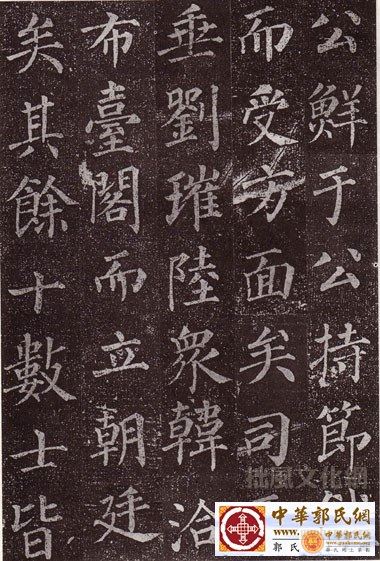 公鮮于公持節
而受方面矣司
垂劉璀陸衆韓洽
布臺閣而立朝廷
矣其餘十數士皆
拙風文化網
中華郭氏網
www.
郭氏